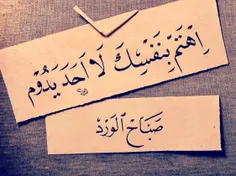 اِهْتَم بِنَفْسِكَ لَا اَحَد يَدُوْم
صَبَاحُ الْوَرْدْ